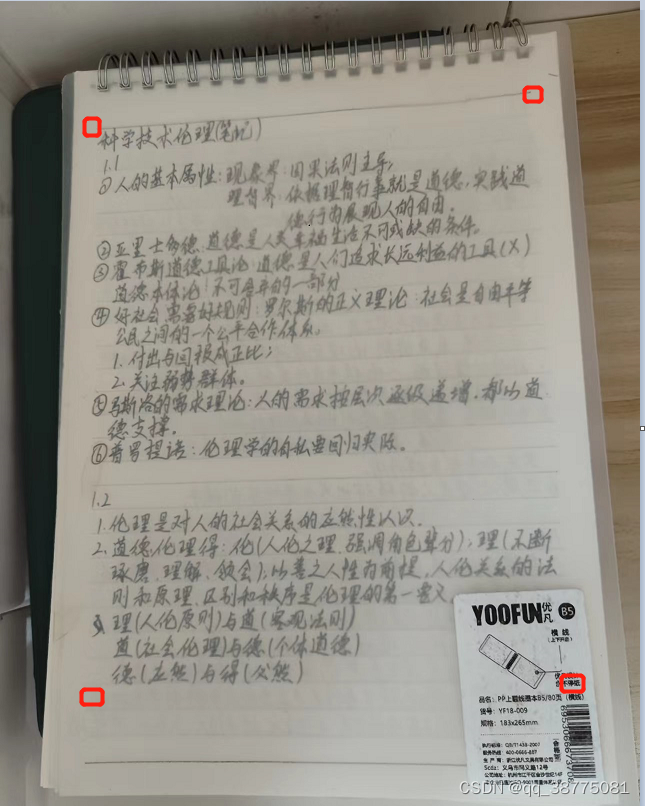 科学技术伦理(笔记)
1.1
①人的基本属性:现象界:因果法则主导,
理智界:依据理智行事就是道德,实践道
德行为展现人的自由.
②亚里士多德:道德是人类幸福生活不可或缺的条件。
③霍布斯道德工具论:道德是人们追求长远利益的工具(X)
道德本体论:不可分割的一部分
④好社会需要好规则:罗尔斯的正义理论:社会是自由平等
公民之间的一个公平合作体系。
1.付出与回报成正比;
2.关注弱势群体。
⑤马斯洛的需求理论:人的需求按层次逐级递增.都以道
德支撑。
⑥普罗提诺:伦理学的自私要回归实际。
1.2
1.伦理是对人的社会关系的应然性认识.
2.道德伦理得:伦(人伦之理,强调角色辈分),理(不断
琢磨、理解、领会);以善之人性为前提,人伦关系的法
则和原理、区别和秩序是伦理的第一要义
3.理(人伦原则)与道(客观法则)
道(社会伦理)与德(个体道德)
德(应然)与得(必然)
YOOFUN优凡 B5
横线
(上下开启)
不停纸
品名:PP上翻线圈本B5/80页(横线)
货号:YF18-009
规格:183x265mm
执行标准:QB/T1438-2007
服务热线:400-0666-887
生产商:浙江优凡文具有限公司
Scdz:义乌市同义路12号
合格
CSDN @qq_38775081